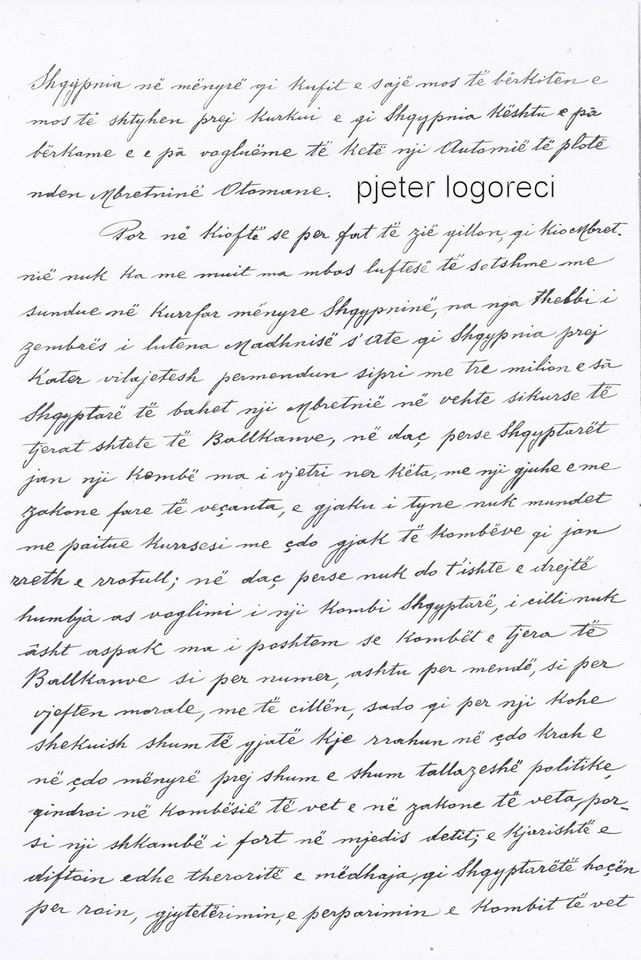 Shqypnia në mënyrë qi kufit e sajë mos të bërkiten e
mos të shtyhen prej kurkui e qi Shqypnia kështu e pã
bërkame e e pã vogluëme të ketë nji Automië të plotë
nden Mbretninë Otomane. pjeter logoreci
Por në kioftë se per fat të zië yillon, qi kio Mbret-
nië nuk ka me muit ma mbas luftesë të sotshme me
sundue në kurrfar mënyre Shqypninë, na nga thelbi i
zembrës i lutena Madhnisë s'Ate qi Shqypnia prej
Kater vilajetesh permendun sipri me tre milion e sã
Shqyptarë të bahet nji Mbretnië në vehte sikurse të
tjerat shtete të Ballkanve, në daç perse Shqyptarët
jan nji kombë ma i vjetri ner këta, me nji gjuhe e me
zakone fare të veçanta, e gjaku i tyne nuk mundet
me paitue kurrsesi me çdo gjak të kombëve qi jan
rreth e rrotull; në daç perse nuk do t'ishte e drejtë
humbja as voglimi i nji kombi Shqyptarë, i cilli nuk
âsht aspak ma i poshtem se kombët e tjera të
Ballkanve si per numer, ashtu per mendë, si per
vjeften morale, me të cillën, sado qi per nji kohe
shekuish shum të gjatë kje rrahun në çdo krah e
në çdo mënyrë prej shum e shum tallazeshë politike,
qindroi në kombësië të vet e në zakone të veta, por-
si nji shkambë i fort në mjedis detit; e kjarishtë e
diftoin edhe theroritë e mëdhaja, qi Shqyptarëtë boçën
per roin, gjytetërimin, e perparimin e Kombit të vet